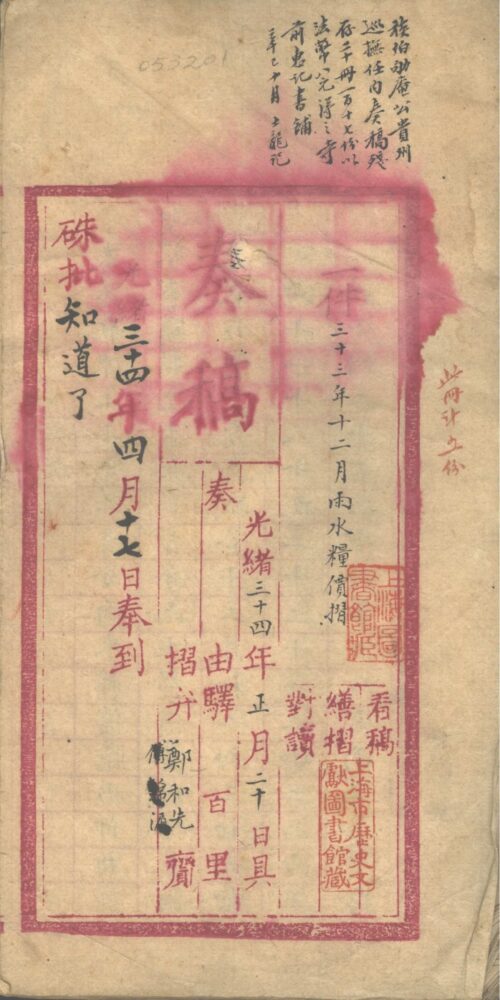 053201
族伯劬庵公貴州
巡撫任內奏稿殘
存二十冊一百十七份以
法幣八元得之寺
前惠記書舖
辛巳十月士龍記
此冊計份
一件
三十三年十二月雨水糧價摺
上海圖
書館藏
看稿
繕摺
對讀
上海市歷史文
獻圖書館藏
奏稿
光緒三十四年正月二十日具
奏
由驛 百里
摺弁鄭和先齎
光緒三十四年四月十七日奉到
硃批知道了